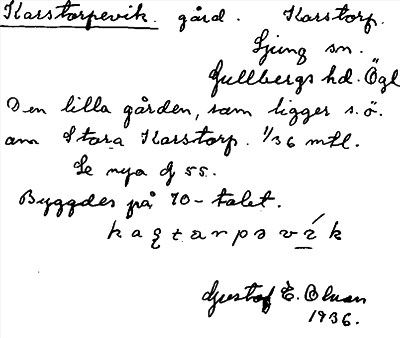 Karstorpevik. gård. Karstorp.
Ljung sn.
Gullbergs hd. Ögl
Den lilla gården, som ligger s.ö.
om Stora Karstorp. 1/36 mtl.
Se nya
Byggdes på 70-talet.
Gustaf E.
1936.